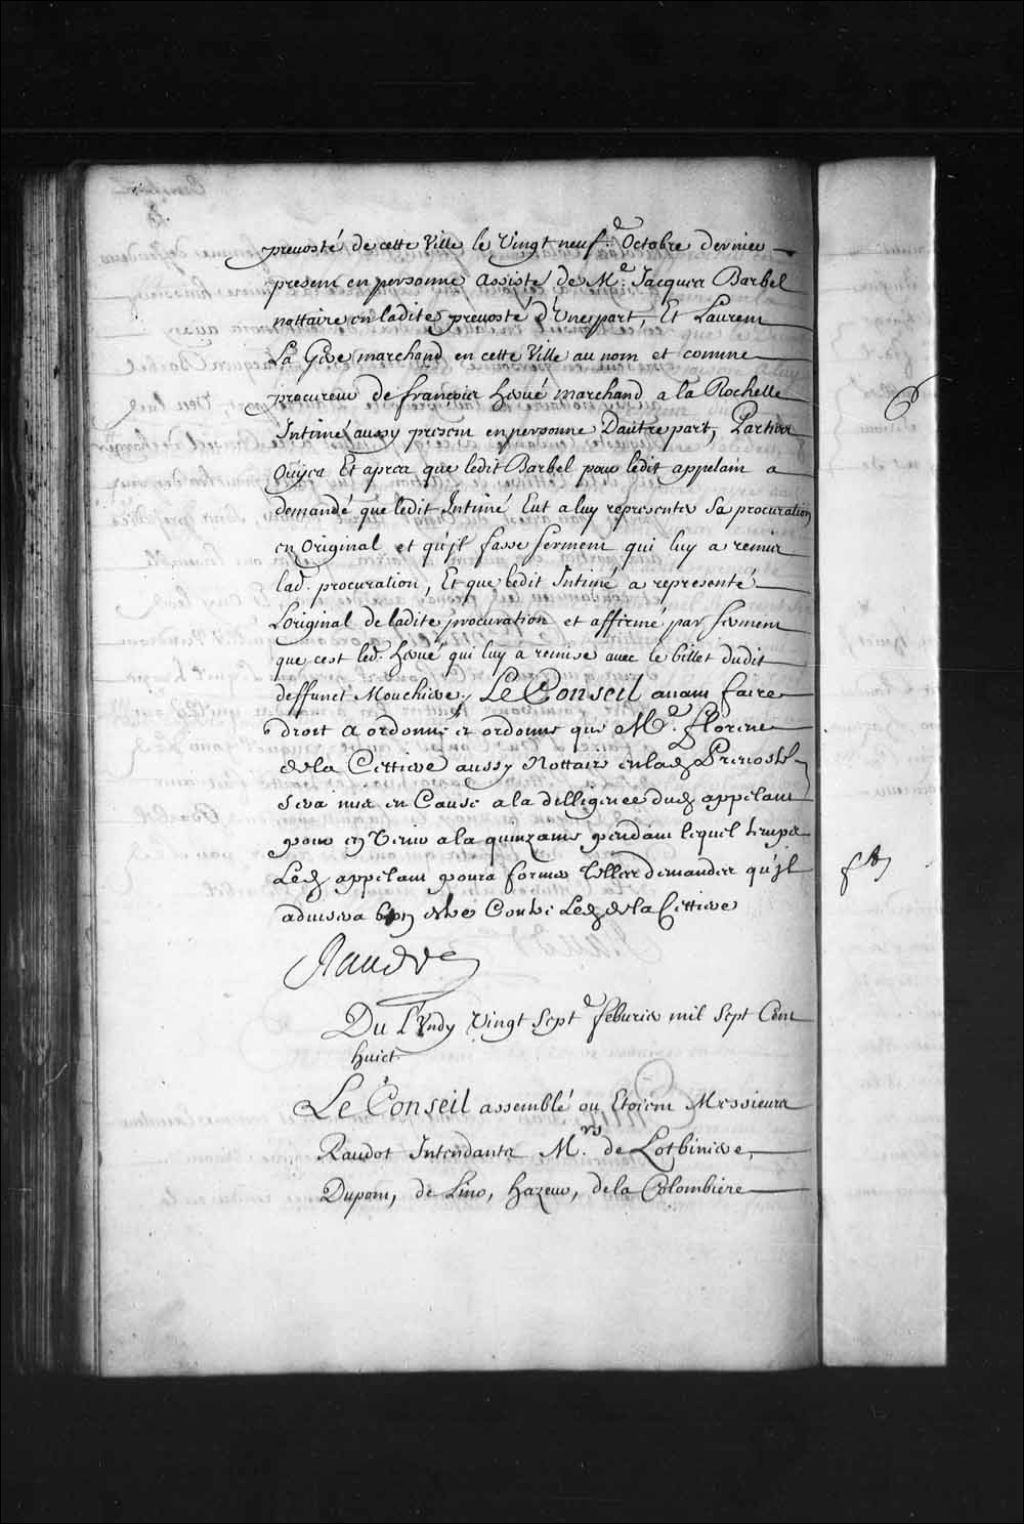 prevosté de cette Ville le Vingt neuf.e Octobre dernier
present en personne assisté de M.e Jacques Barbel
nottaire en ladite prevosté d'Une part, Et Laurent
La Gere marchand en cette Ville au nom et comme
procureur de francois hervé marchand a la Rochelle
Intimé aussy present en personne Dautre part, Parties
Ouÿes Et apres que ledit Barbel pour ledit appelant a
demandé que ledit Intimé Eut a luy representer Sa procuration
en Original et qu'jl fasse serment qui luy a remis
lad. procuration, Et que ledit Intimé a representé
Loriginal de ladite procuration et affirmé par serment
que cest led. hervé qui luy a remise avec le billet dudit
deffunct Mouchiere, Le Conseil avant faire
droit a ordonné et ordonne que M.e florent
de la Cettiere aussy Nottaire en lad Prevosté
Sera mis en Cause a la dilligence dud appelant
pour en Venir a la quinzaine pendant lequel temps
Led appelant poura former telles demandes qu'jl
advisera bon estre Contre Led de la Cettiere
Raudot
Du Lundy Vingt Sept.e feburier mil Sept Cent
huict
Le Conseil assemblé ou Etoient Messieurs
Raudot Intendants M.rs de Lotbiniere,
Dupont, de Lino, hazeur, de la Colombiere